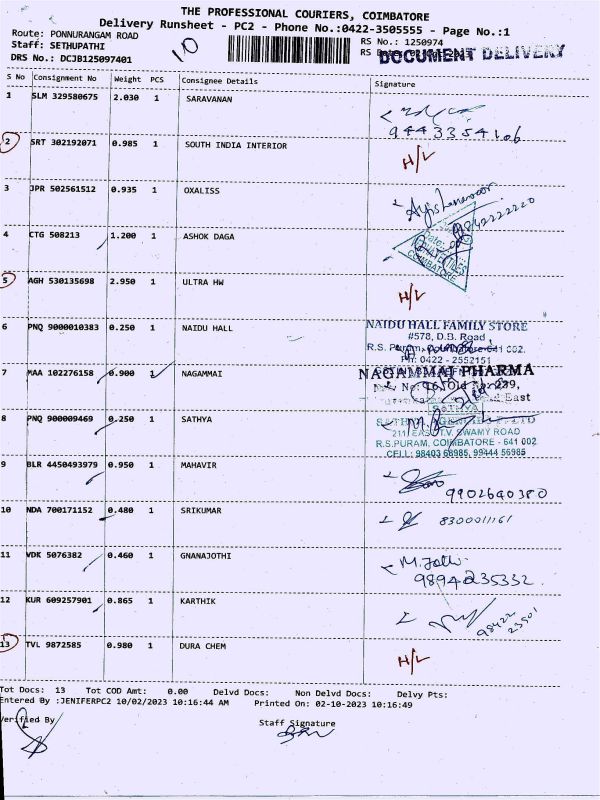 THE PROFESSIONAL COURIERS, COIMBATORE
Delivery Runsheet - PC2 - Phone No.:0422-3505555 - Page No.:1
Route: PONNURANGAM ROAD
Staff: SETHUPATHI
DRS No.: DCJB125097401
10
RS No.: 1250974
RS
DOCUMENT DELIVERY
S No Consignment No Weight PCS Consignee Details Signature
1 SLM 329580675 2.030 1 SARAVANAN
9443354106
2 SRT 302192071 0.985 1 SOUTH INDIA INTERIOR H/L
3 JPR 502561512 0.935 1 OXALISS
9842222220
4 CTG 508213 1.200 1 ASHOK DAGA
COIMBATORE
5 AGH 530135698 2.950 1 ULTRA HW H/L
6 PNQ 9000010383 0.250 1 NAIDU HALL
NAIDU HALL FAMILY STORE
#578, D.B. Road
R.S. Puram, Coimbatore-641 002.
Ph: 0422 - 2552151
7 MAA 102276158 0.900 1 NAGAMMAI
NAGAMMAI PHARMA
8 PNQ 900009469 0.250 1 SATHYA
SATHYA
211 EAST T.V. SWAMY ROAD
R.S.PURAM, COIMBATORE - 641 002
CELL: 98403 68985, 99444 56985
9 BLR 4450493979 0.950 1 MAHAVIR
9902640380
10 NDA 700171152 0.480 1 SRIKUMAR
8300011161
11 VDK 5076382 0.460 1 GNANAJOTHI
9894235332
12 KUR 609257901 0.865 1 KARTHIK
98422
23501
13 TVL 9872585 0.980 1 DURA CHEM H/L
Tot Docs: 13 Tot COD Amt: 0.00 Delvd Docs: Non Delvd Docs: Delvy Pts:
Entered By :JENIFERPC2 10/02/2023 10:16:44 AM Printed On: 02-10-2023 10:16:49
Verified By Staff Signature